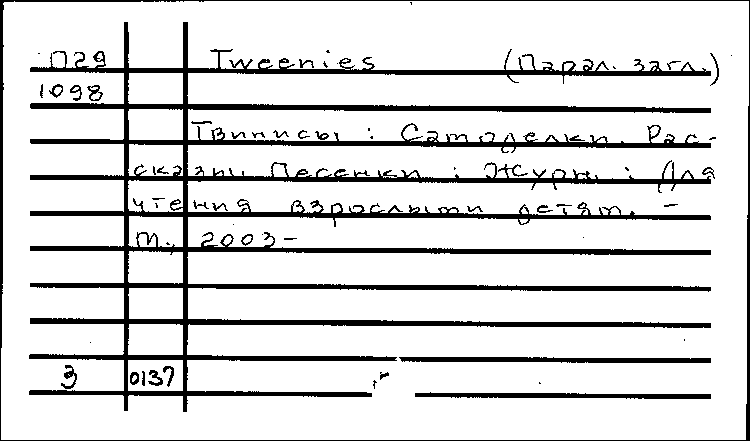 П29 Tweenies (Парал. загл.)
1098
Твинисы : Самоделки. Рас-
сказы. Песенки : Журн. : Для
чтения взрослыми детям. -
М., 2003-
3 0137